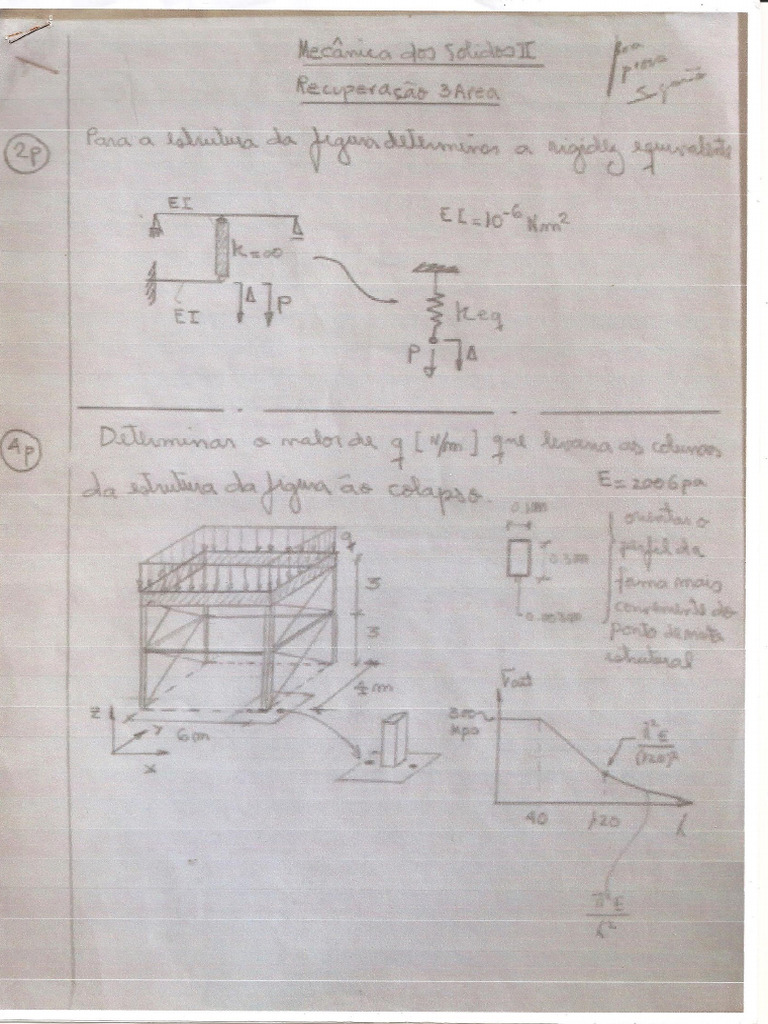 Mecânica dos Solidos II
Recuperação 3 Area
prova
2p
Para a estrutura da figura determinar a rigidez equivalente
EI
EI = 10⁻⁶ Nm²
K = ∞
EI
Δ P
Keq
P Δ
4p
Determinar o valor de q [N/m] que levaria as colunas
da estrutura da figura ão colapso.
E = 200 Gpa
q
3
3
4 m
6m
Z
Y
X
0.3m
orientar o
perfil da
forma mais
conveniente do
ponto de vista
estrutural
300
Mpa
π²E
(120)²
40
120
λ
π²E
λ²